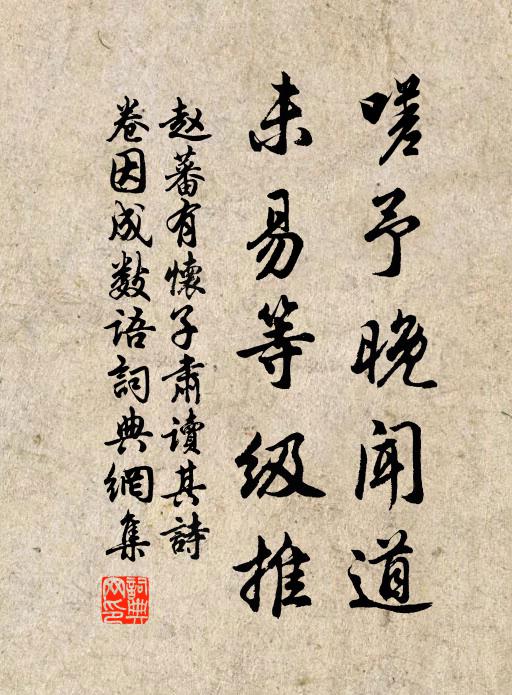 嗟予晚闻道
未易等级推
赵蕃有懷子肃讀其詩
卷因成数语詞典網集
詞典网印